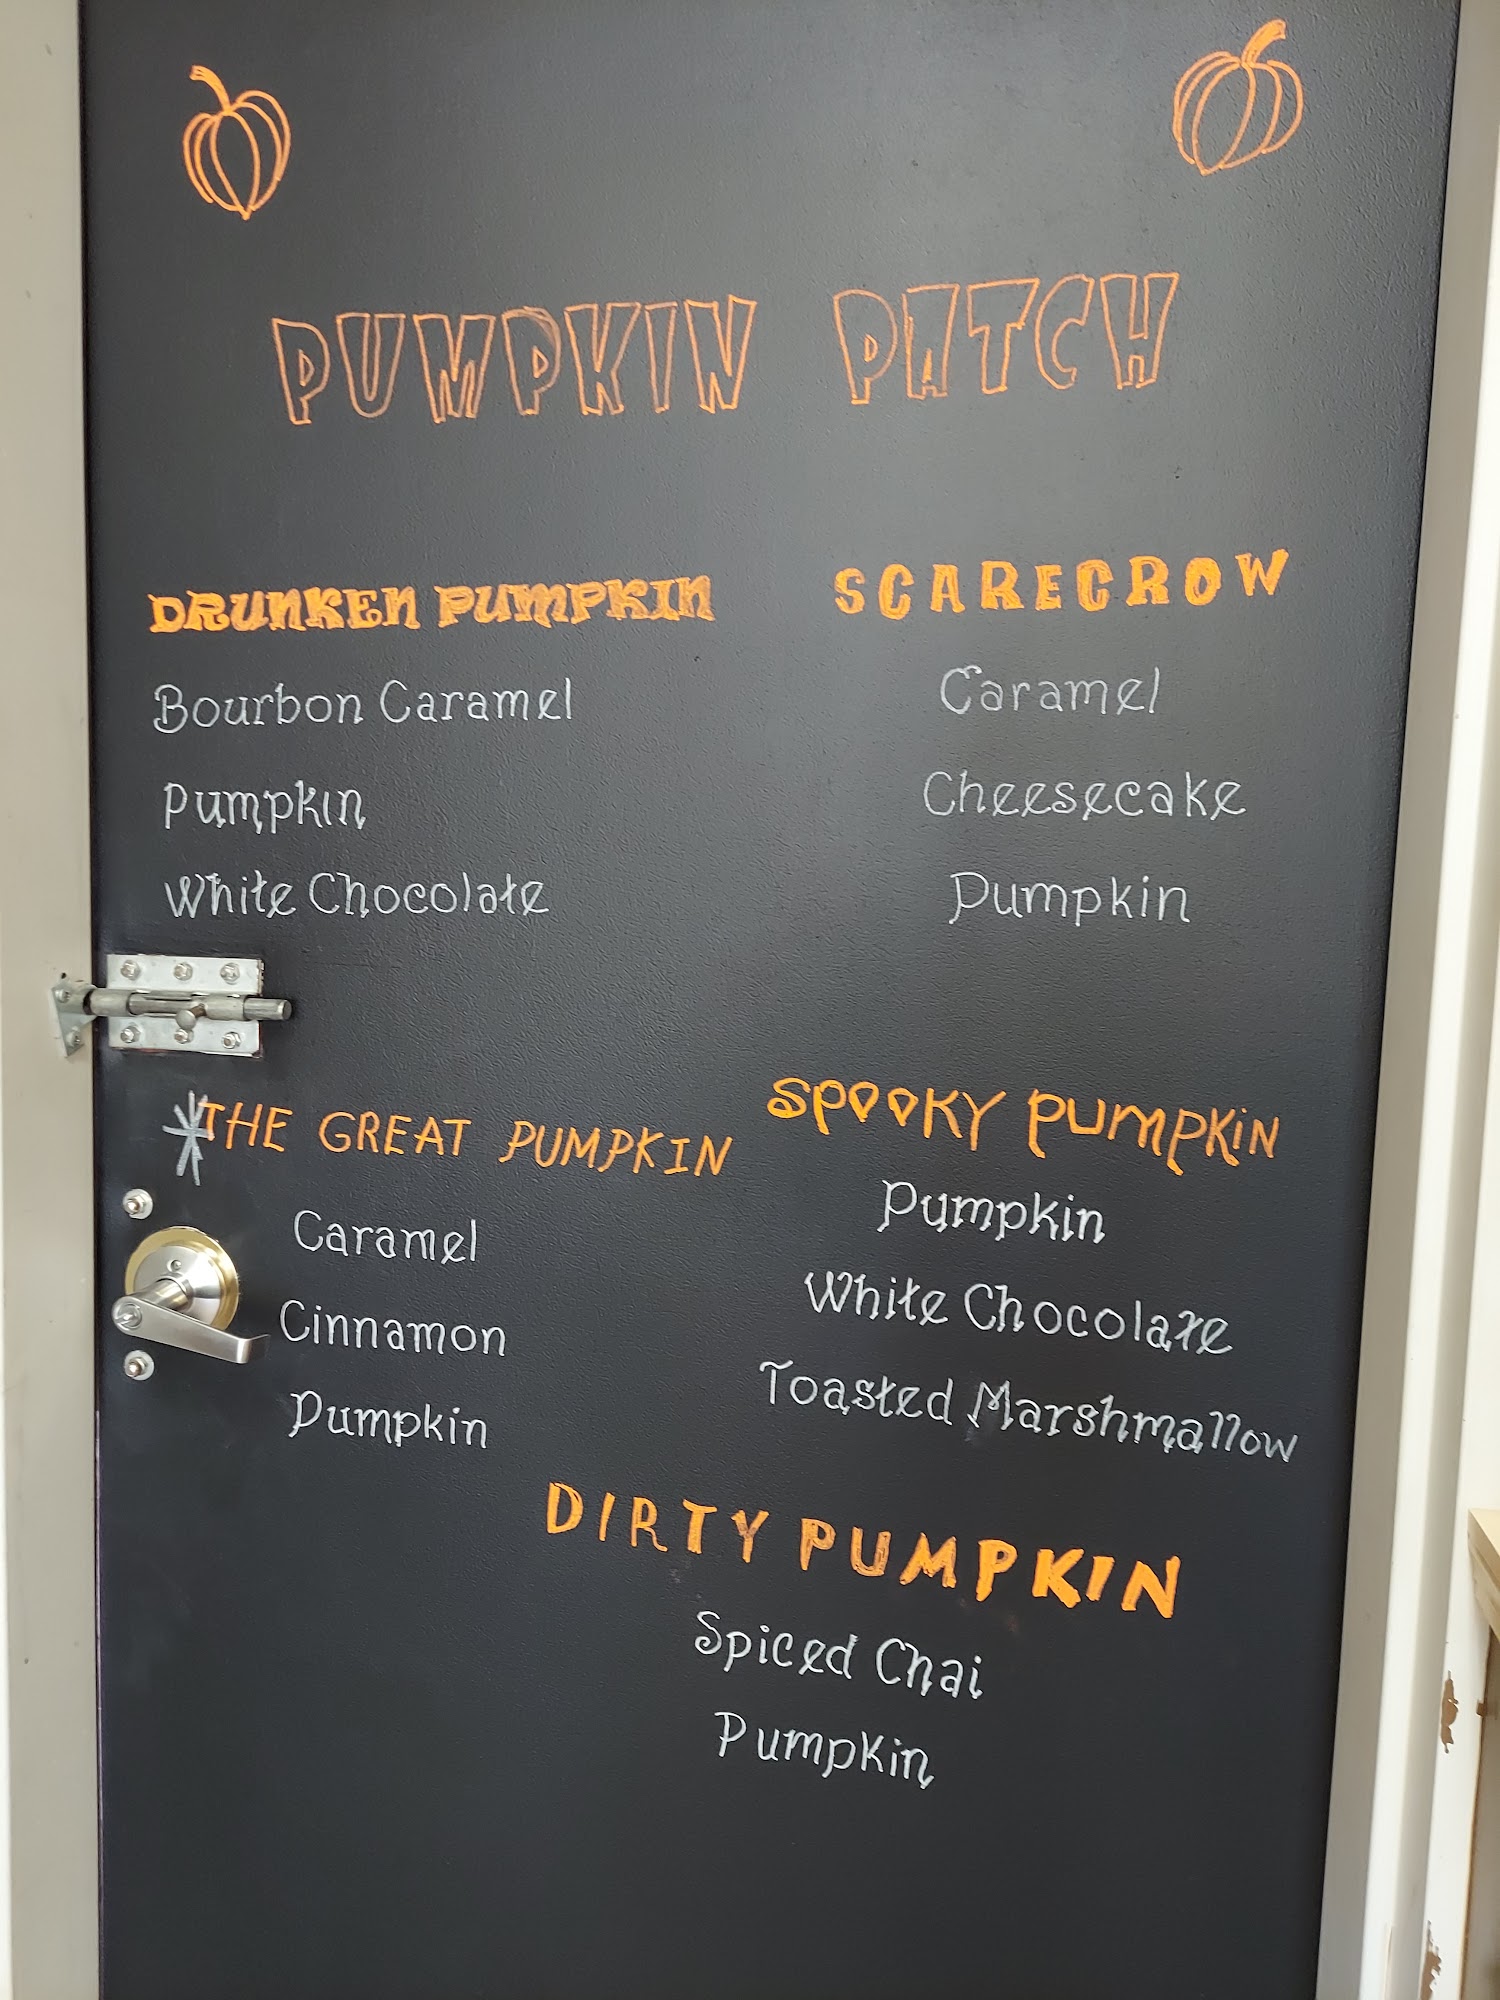 PUMPKIN PATCH
DRUNKEN PUMPKIN
Bourbon Caramel
Pumpkin
White Chocolate
SCARECROW
Caramel
Cheesecake
Pumpkin
*THE GREAT PUMPKIN
Caramel
Cinnamon
Pumpkin
SPOOKY PUMPKIN
Pumpkin
White Chocolate
Toasted Marshmallow
DIRTY PUMPKIN
Spiced Chai
Pumpkin